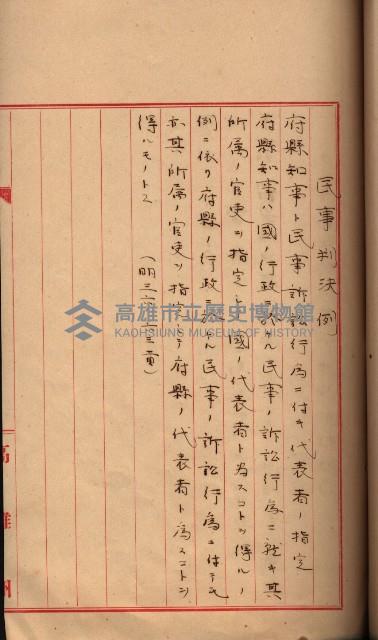 民事判決例
府縣知事ト民事訴訟行為ニ付キ代表者ノ指定
府縣知事ハ國ノ行政ニ於ケル民事ノ訴訟行為ニ就キ其
所属ノ官吏ヲ指定シ國ノ代表者ト為スコトヲ得ルノ
例ニ依リ府縣ノ行政ニ於ケル民事ノ訴訟行為ニ付テモ
亦其所属ノ官吏ヲ指定シテ府縣ノ代表者ト為スコトヲ
得ルモノトス
高雄州
高雄市立歷史博物館
KAOHSIUNG MUSEUM OF HISTORY